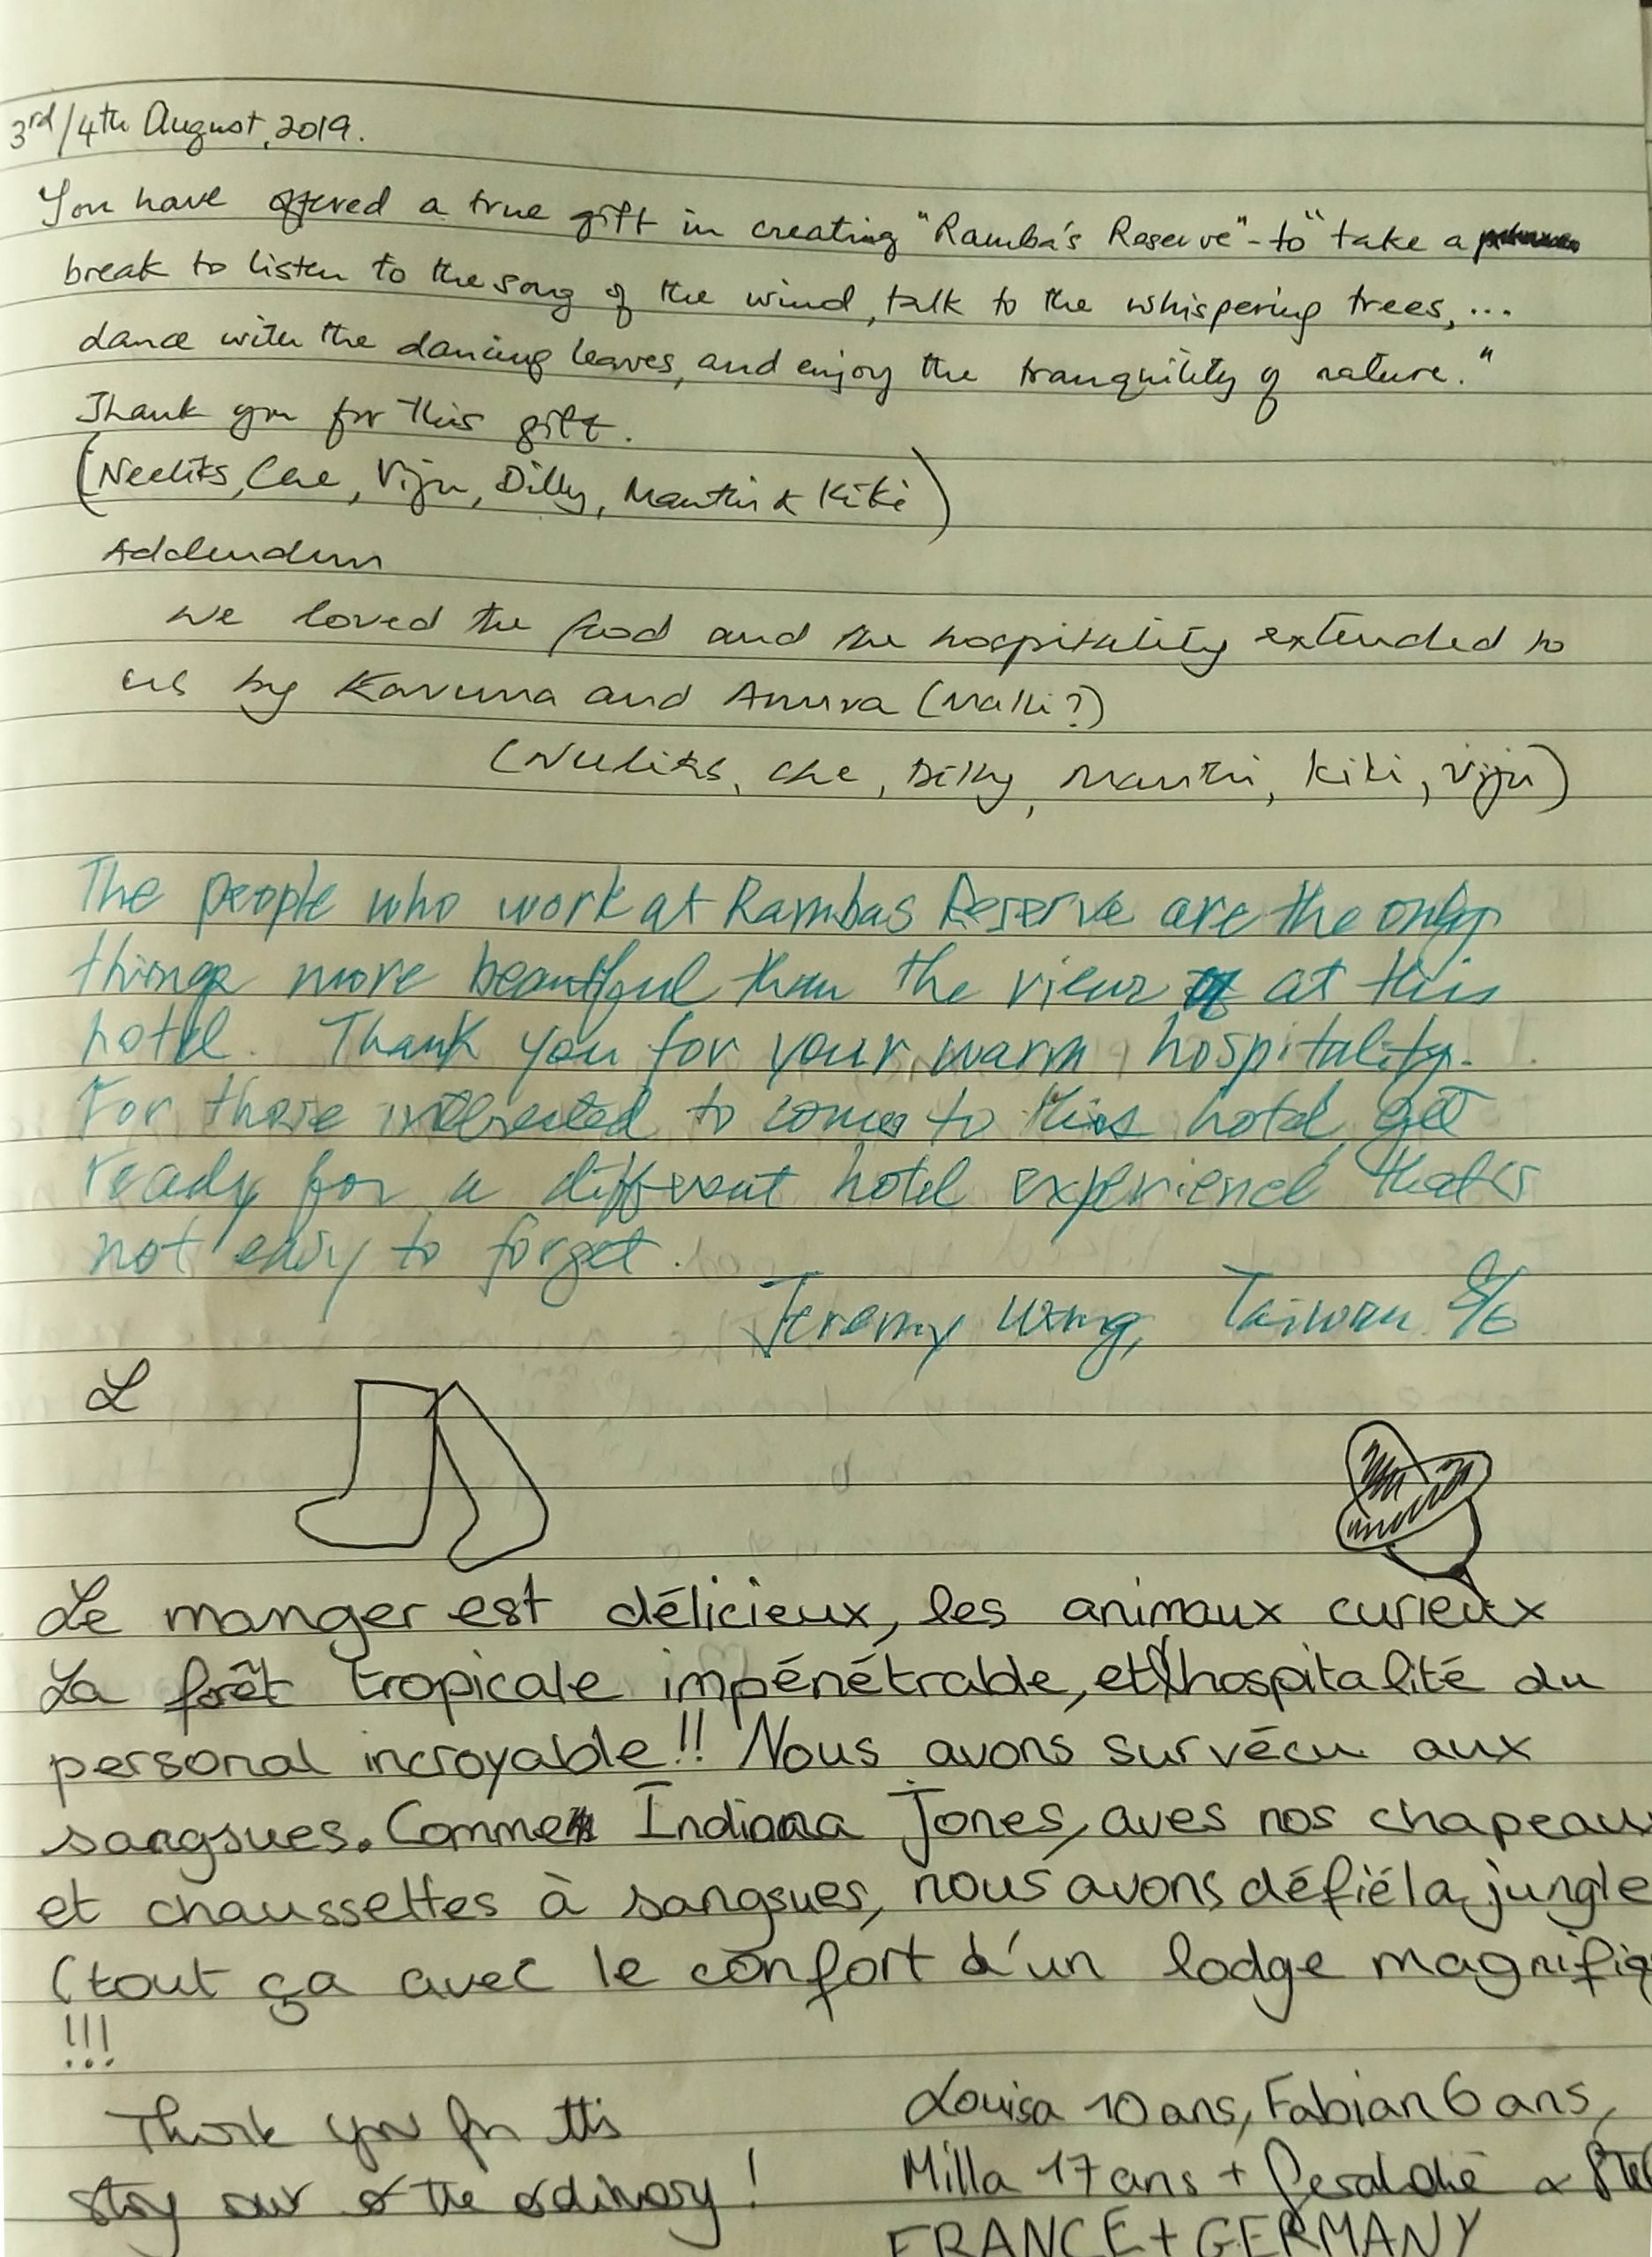 3rd/4th August, 2019.
You have offered a true gift in creating "Ramba's Reserve" - to "take a
break to listen to the song of the wind, talk to the whispering trees, ...
dance with the dancing leaves, and enjoy the tranquility of nature."
Thank you for this gift.
(Neeliks, Che, Viju, Dilly, Manthi & Kiki)
Addendum
We loved the food and the hospitality extended to
us by Karuna and Anura (Malli?)
(Neeliks, Che, Dilly, Manthi, Kiki, Viju)
The people who work at Rambas Reserve are the only
things more beautiful than the view at this
hotel. Thank you for your warm hospitality.
For those interested to come to this hotel, get
ready for a different hotel experience that's
not easy to forget.
Jeremy Wang, Taiwan 8/6
L
Le manger est délicieux, les animaux curieux
La forêt tropicale impénétrable, et l'hospitalité du
personal incroyable!! Nous avons survécu aux
sangsues. Comme Indiana Jones, aves nos chapeau
et chaussettes à sangsues, nous avons défié la jungle
(tout ça avec le confort d'un lodge magnifiq
!!!
Thank you for this
stay out of the ordinary!
Louisa 10 ans, Fabian 6 ans,
Milla 17 ans +
FRANCE + GERMANY